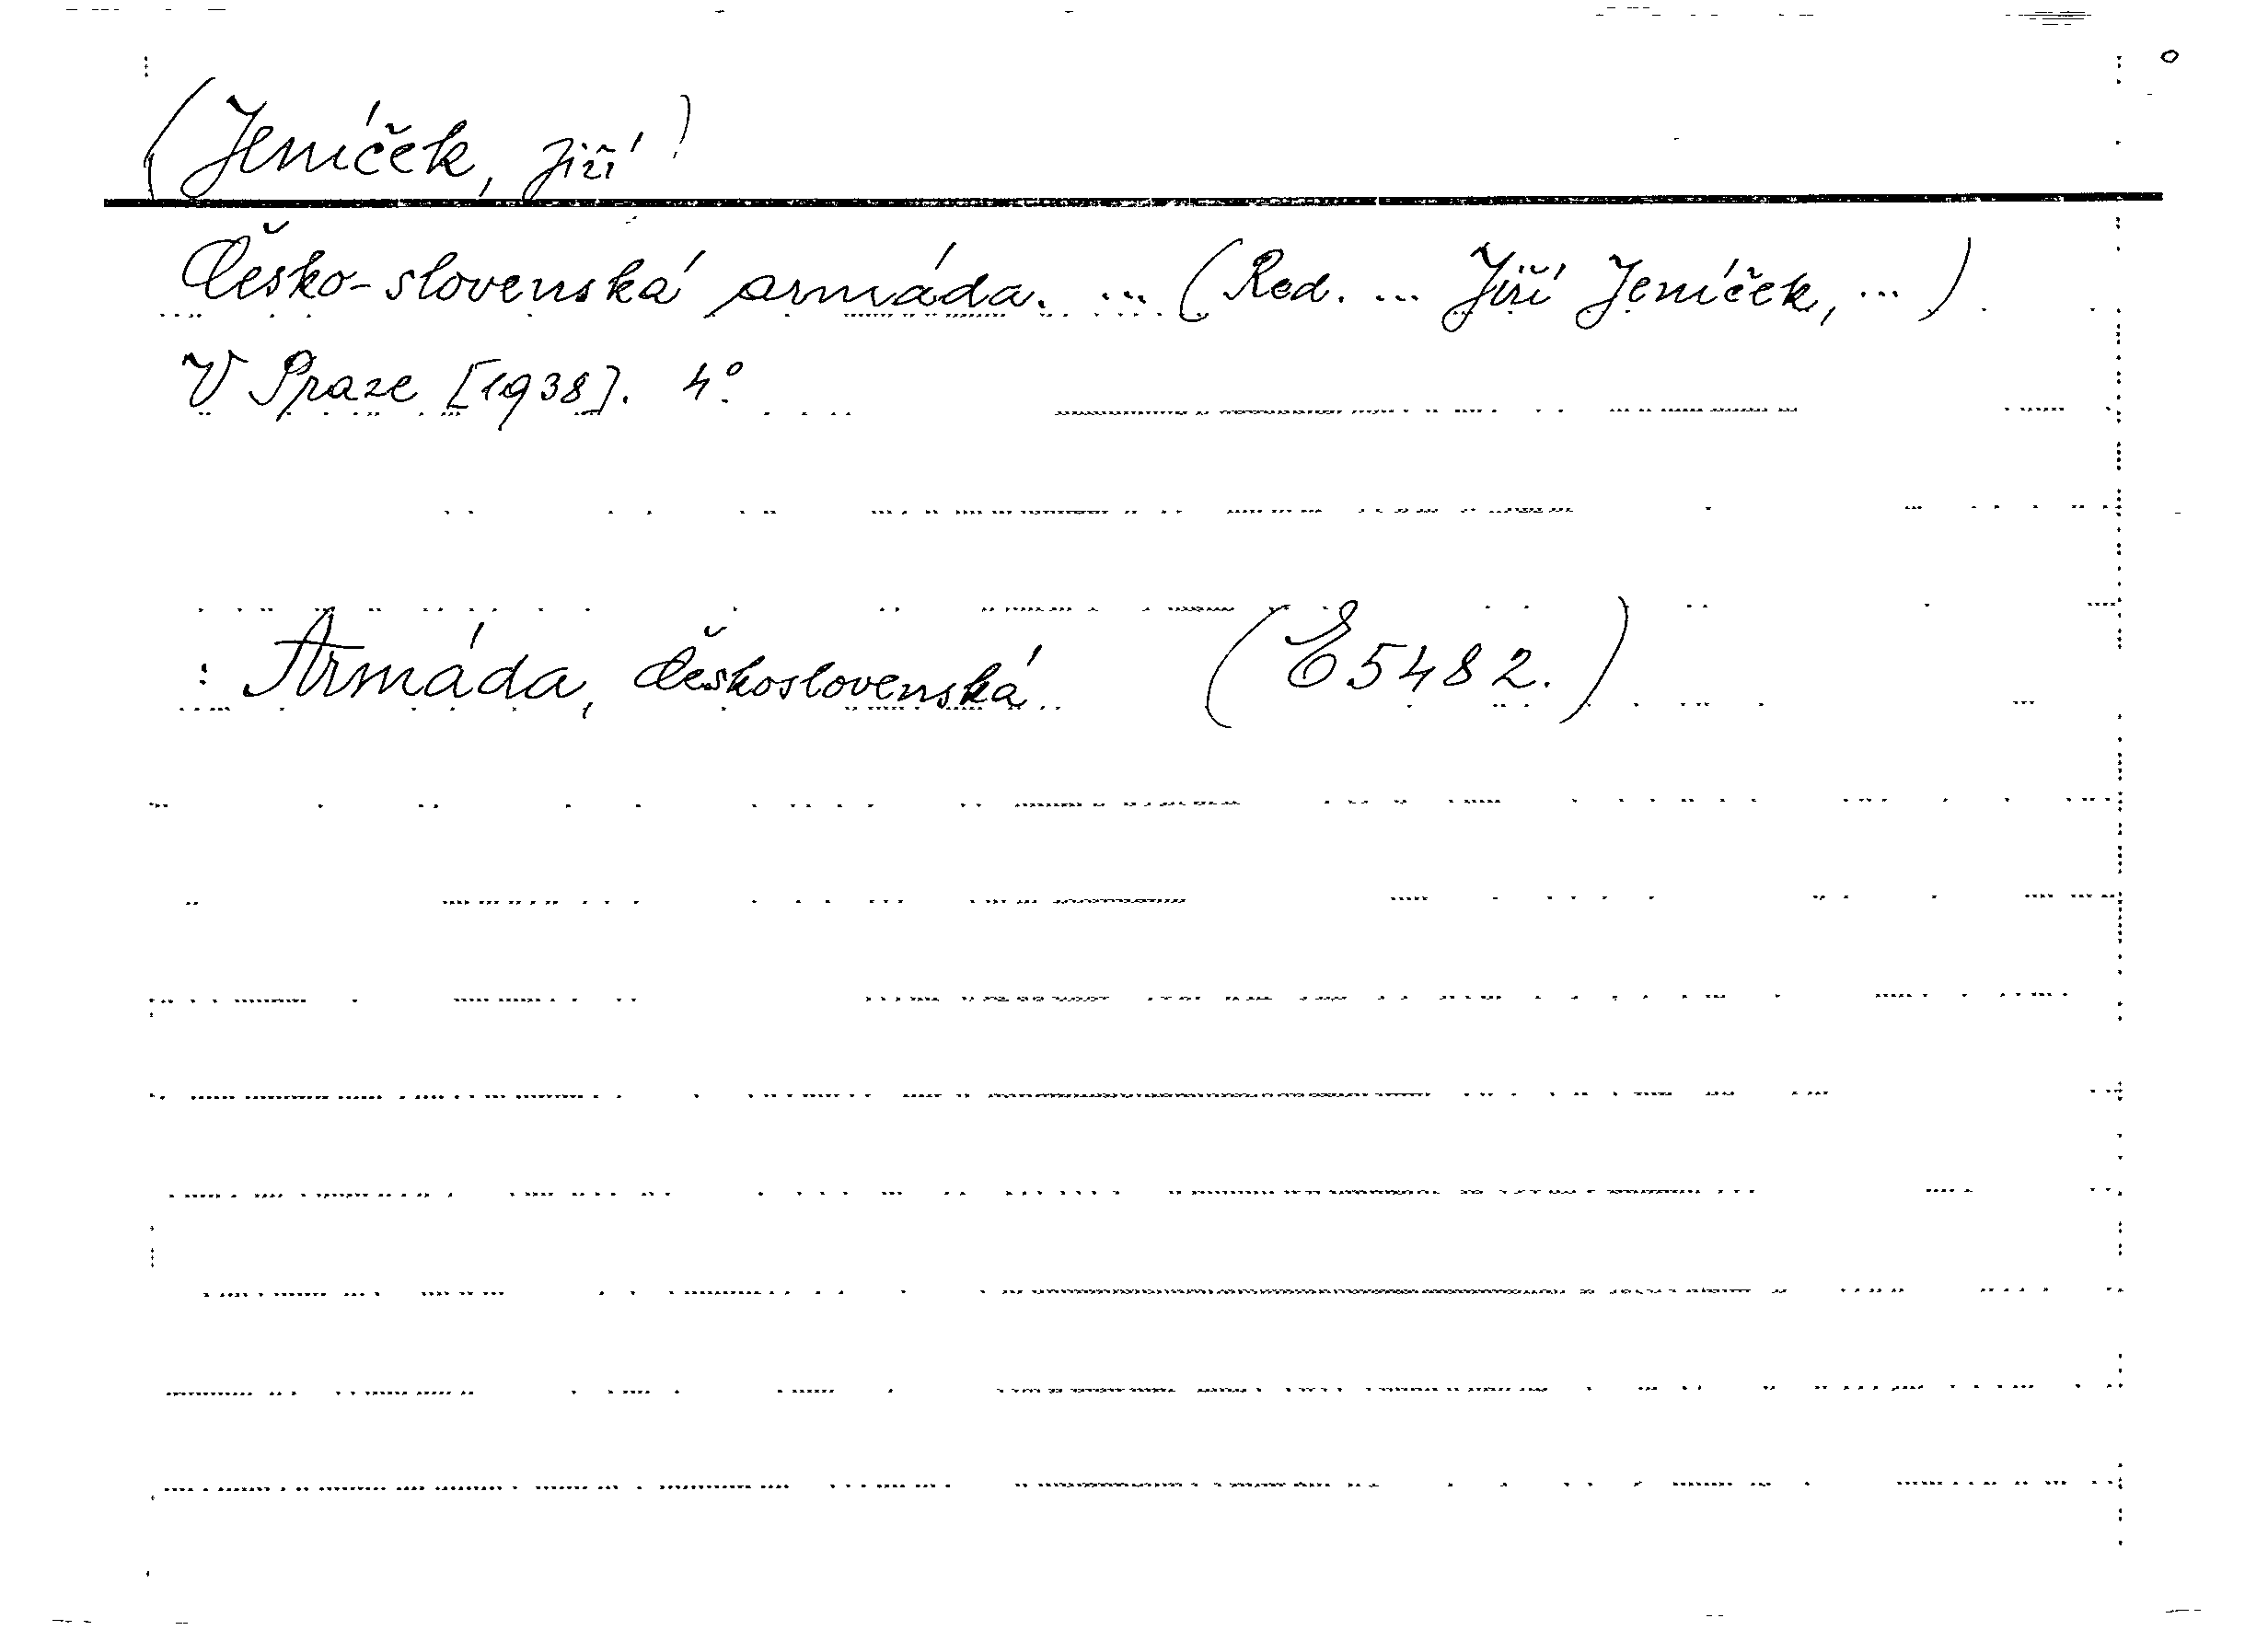 (Jeníček, Jiří)
Česko-slovenská armáda. ... (Red. ... Jiří Jeníček, ...)
V Praze [1938]. 4°.
: Armáda, československá (E 5482.)